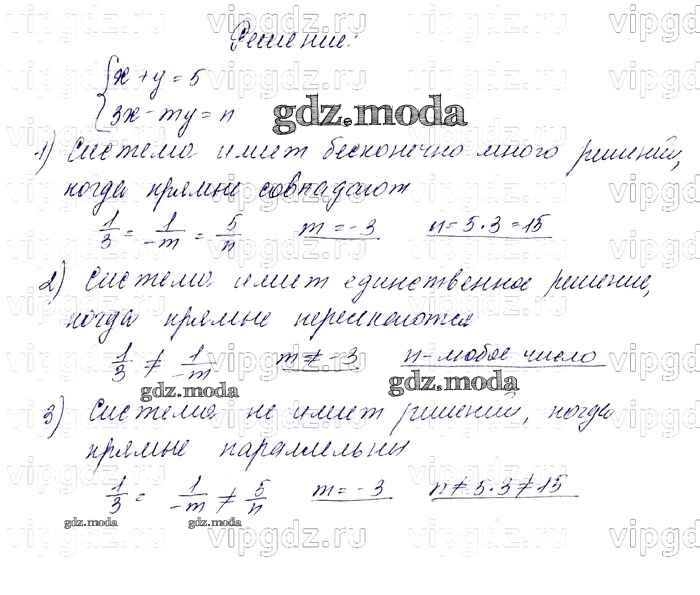 Решение:
{x + y = 5
3x - my = n
gdz.moda
1) Система имеет бесконечно много решений,
когда прямые совпадают
1/3 = 1/-m = 5/n m = -3 n = 5·3 = 15
2) Система имеет единственное решение,
когда прямые пересекаются
1/3 ≠ 1/-m m ≠ -3 n - любое число
gdz.moda gdz.moda
3) Система не имеет решений, когда
прямые параллельны
1/3 = 1/-m ≠ 5/n m = -3 n ≠ 5·3 ≠ 15
gdz.moda gdz.moda
vipgdz.ru